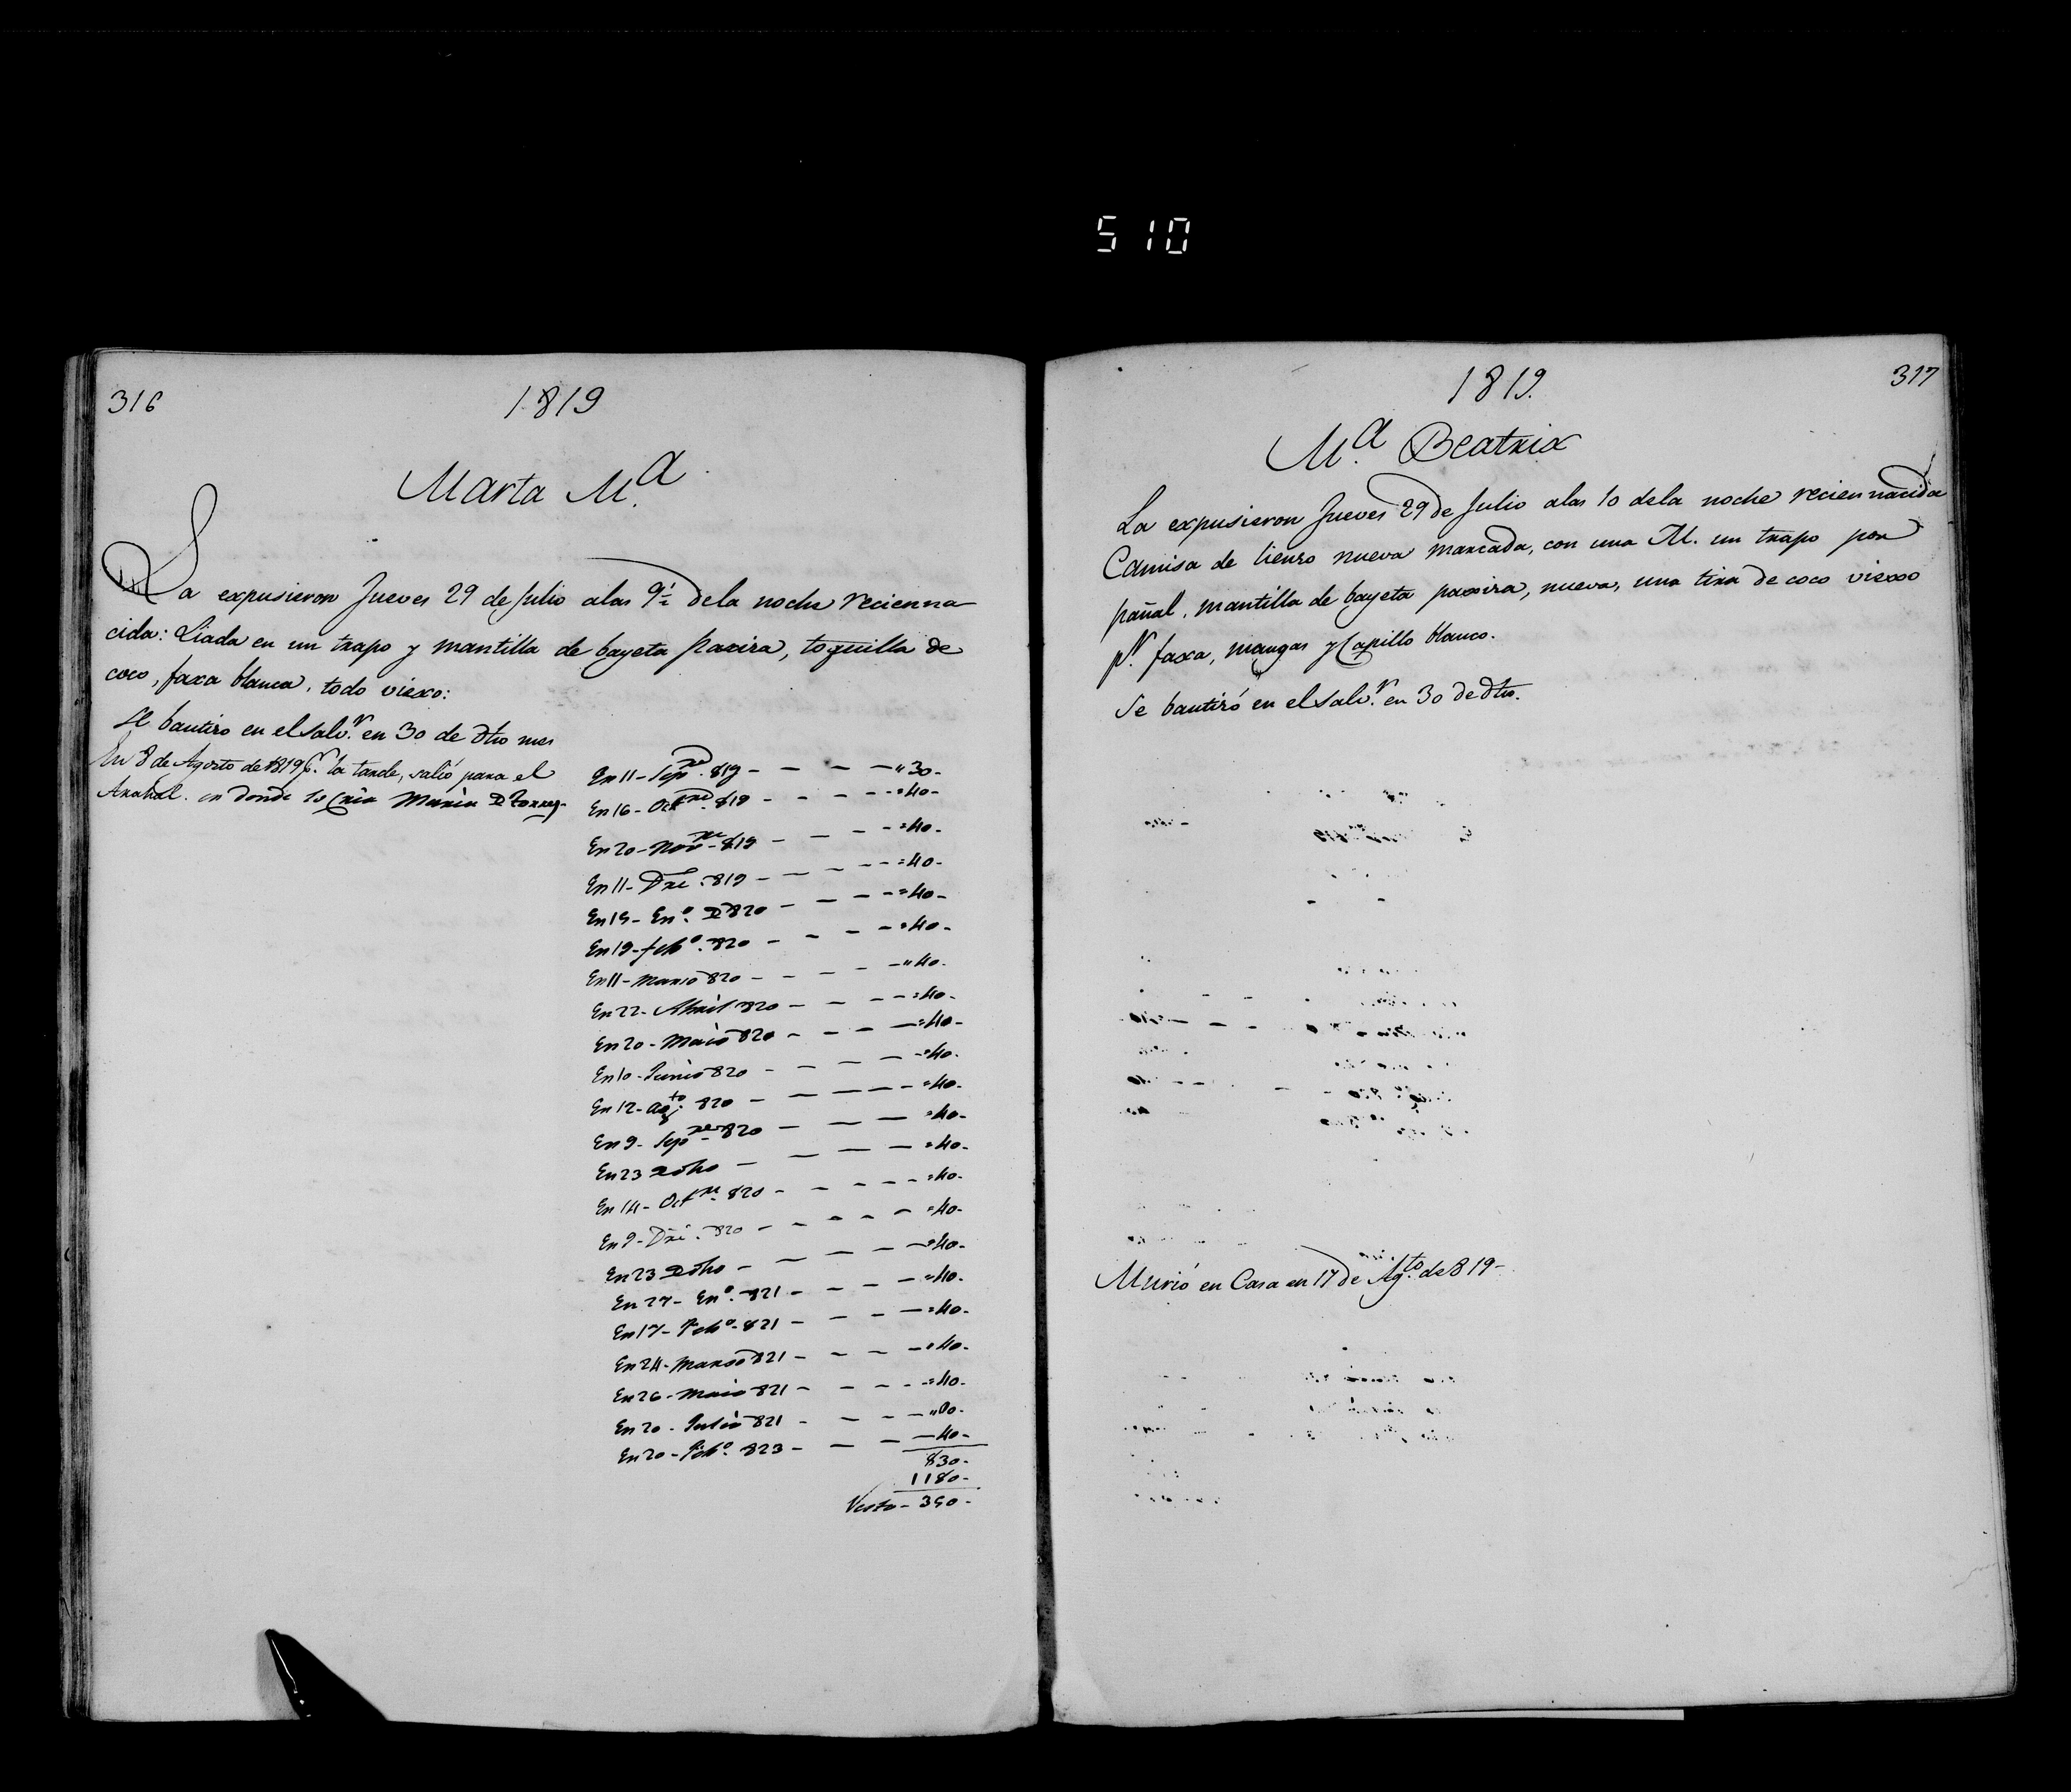 510
316
1819
Marta M.ª
La expusieron Jueves 29 de Julio alas 9½ dela noche recienna
cida: Liada en un trapo y mantilla de bayeta paxira, toquilla de
coco, faxa blanca, todo viexo:
Se bautizo en el Salv.r en 30 de dho mes
En 8 de Agosto de 1819 p.r la tarde, salió para el
Arahal. en donde la Cria Maria D Torres
En 11 - Sep.re 819 - - - - " 30 -
En 16 - Oct.re 819 - - - - = 40 -
En 20 - Nov.re 819 - - - - = 40 -
En 11 - Dre. 819 - - - - = 40 -
En 15 - En.o D 820 - - - - = 40 -
En 19 - feb.o 820 - - - - = 40 -
En 11 - Marzo 820 - - - - " 40 -
En 22 - Abril 820 - - - - = 40 -
En 20 - Maio 820 - - - - = 40 -
En 10 - Junio 820 - - - - = 40 -
En 12 - Ag.to 820 - - - - = 40 -
En 9 - Sep.re 820 - - - - = 40 -
En 23 D dho - - - - = 40 -
En 14 - Oct.re 820 - - - - = 40 -
En 9 - Dre. 820 - - - - = 40 -
En 23 D dho - - - - = 40 -
En 27 - En.o 821 - - - - = 40 -
En 17 - Feb.o 821 - - - - = 40 -
En 24 - Marzo 821 - - - - = 40 -
En 26 - Maio 821 - - - - = 40 -
En 20 - Julio 821 - - - - " 00 -
En 20 - Feb.o 823 - - - - 40 -
830 -
1180 -
Resto - 350 -
317
1819.
M.ª Beatrix
La expusieron Jueves 29 de Julio alas 10 dela noche reciennacida
Camisa de lienzo nueva marcada, con una M. un trapo por
pañal, mantilla de bayeta paxira, nueva, una tira de coco viexo
p.r faxa, mangas y Capillo blanco.
Se bautizó en el Salv.r en 30 de dho.
Murió en Casa en 17 de Ag.to de 819 -